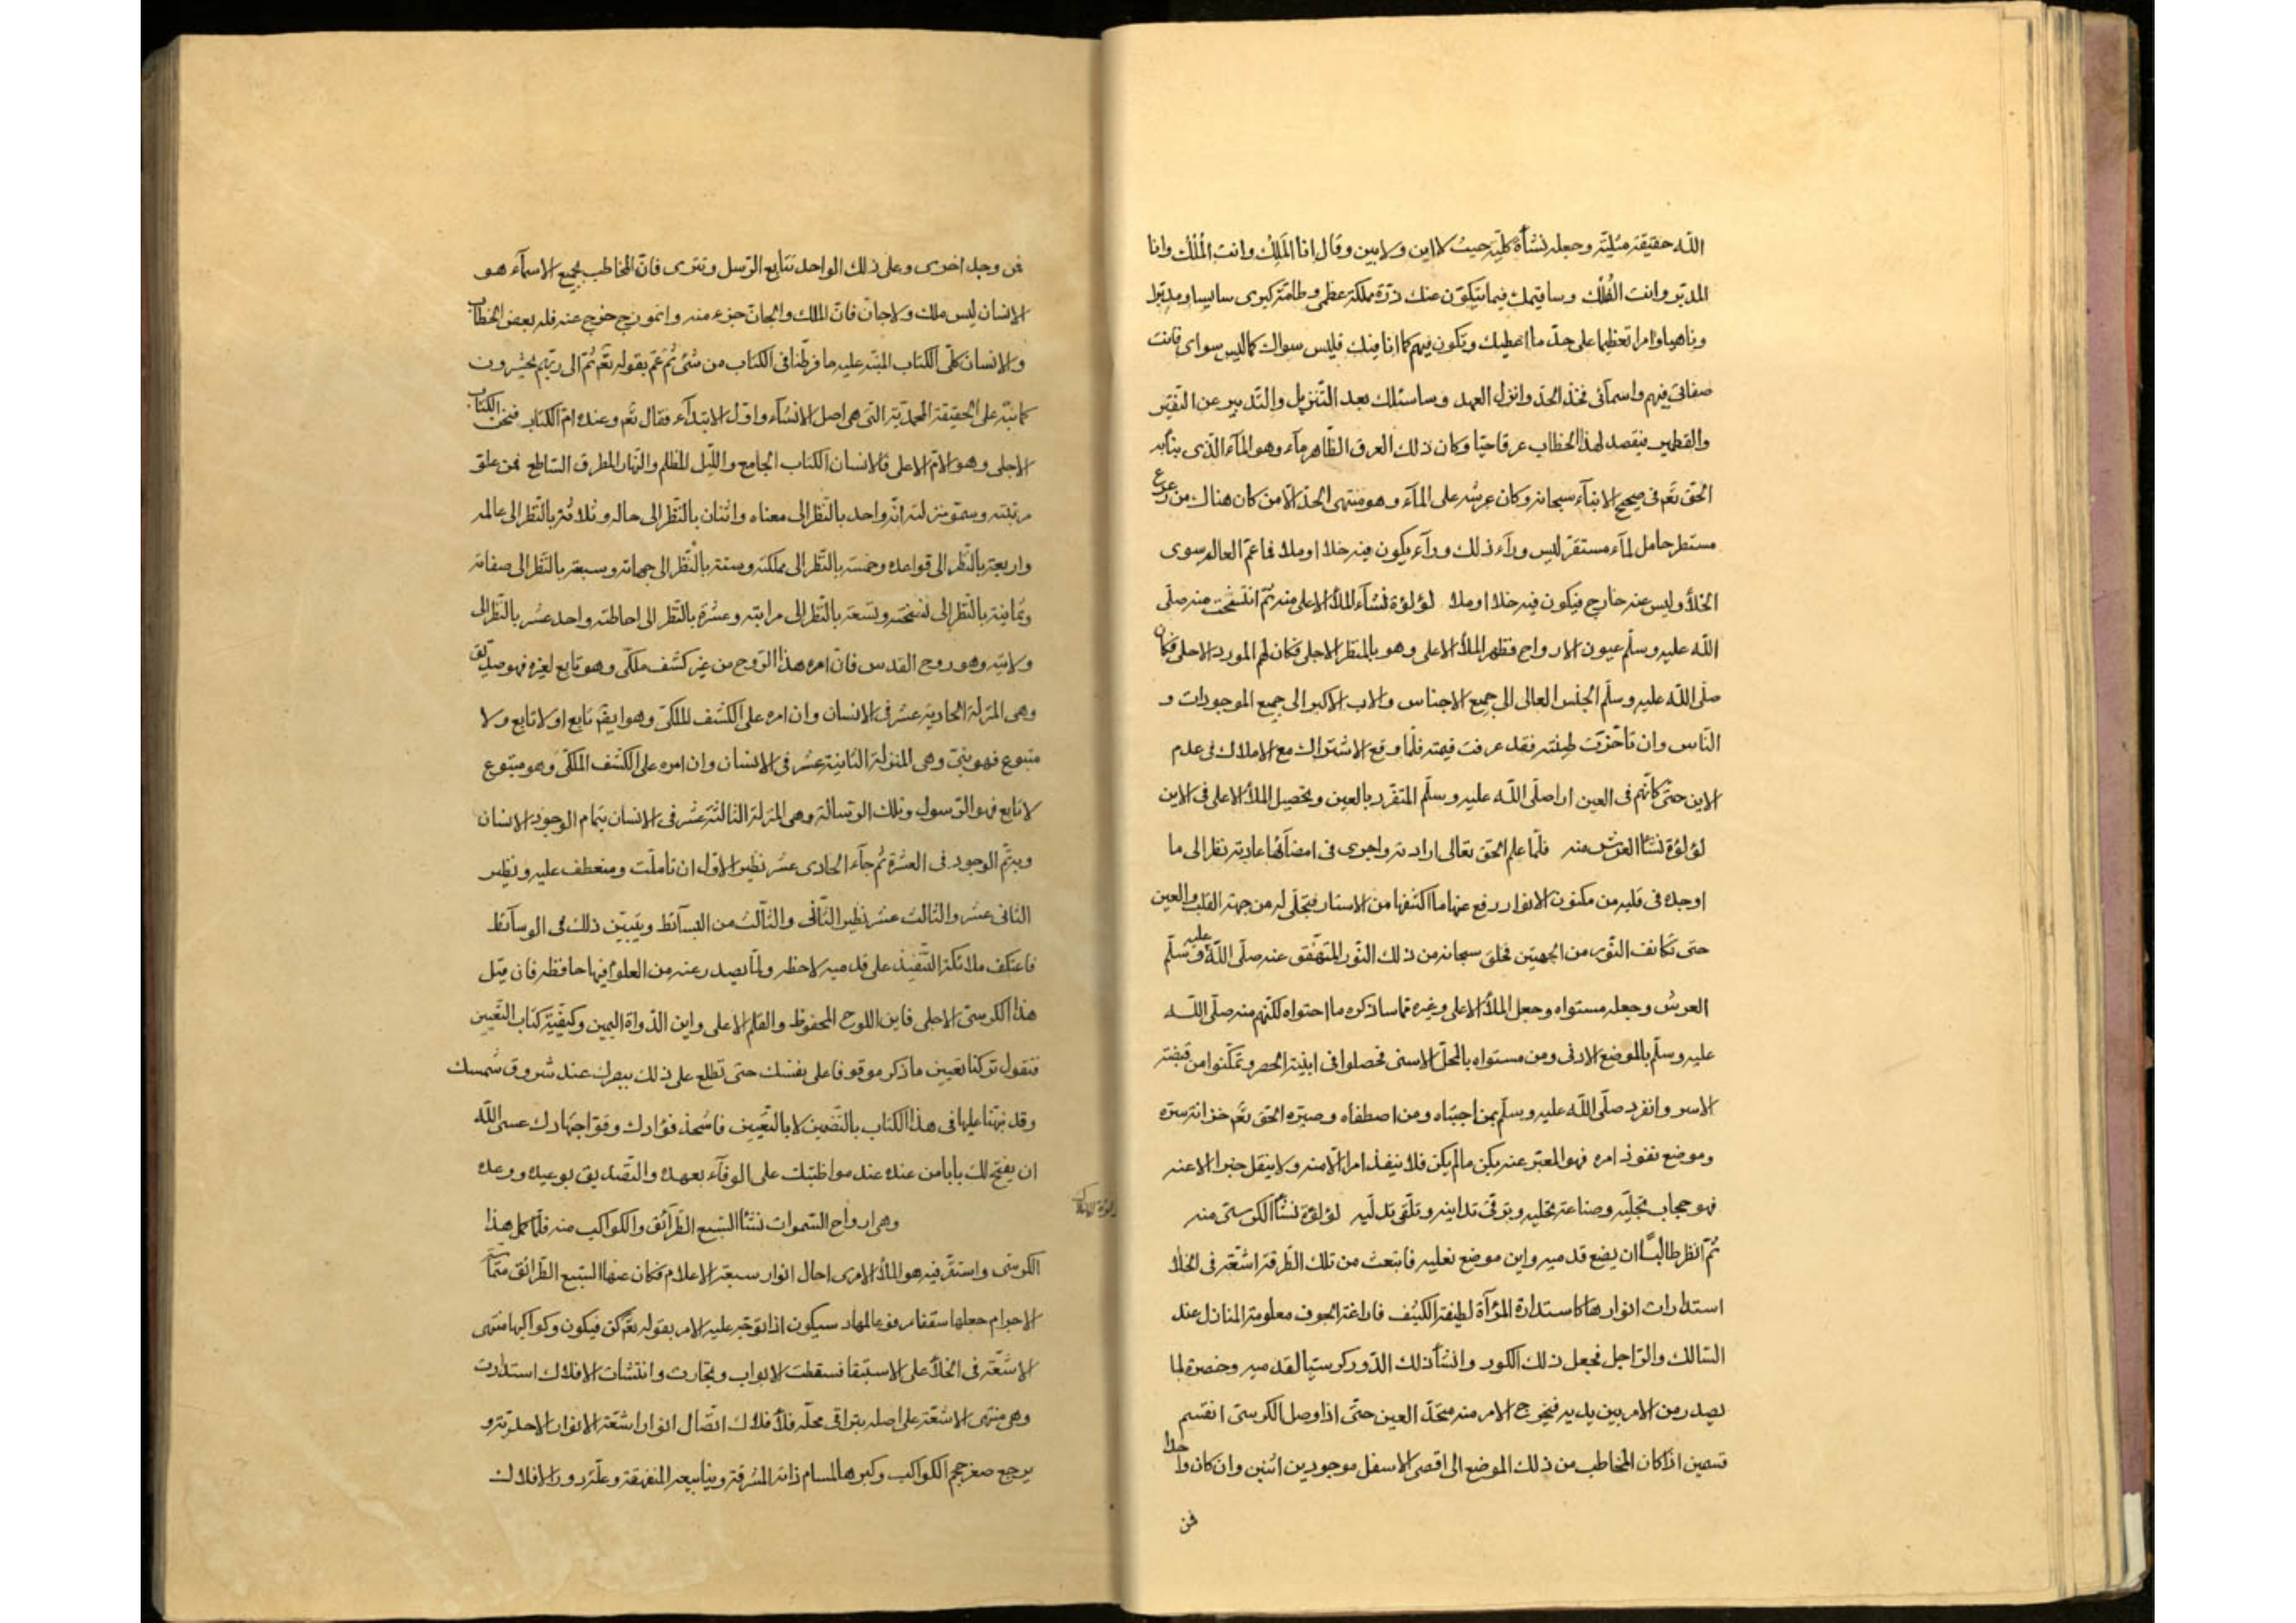 الله حقيقة مثليّة وجعله نشأة كليّة حيث لا اين ولا بين وقال انا المَلِكُ وانت المُلْك وانا
المدبّر وانت الفُلْك وساقيمك فيما يتكوّن عنك ذرّة مملكة عظمى وطامّة كبرى سايسا ومدبّرا
وناهيا وامرا تعظيما على حدّ ما اعطيك وتكون فيهم كما انا فيك فليس سواك كما ليس سواى فانت
صفاتى فيهم واسمآئى فخذ الحدّ وانزل العهد وساسئلك بعد التّنزيل والتّدبير عن النقير
والقطمير فتفصد لهذا الخطاب عرقا حيّا وكان ذلك العرق الظّاهر مآء وهو المآء الّذى ينأ به
الحقّ تعّم فى صحيح الانبآء سبحانه وكان عرشه على المآء وهو منتهى الحدّ الّا من كان هناك من زعزع
مستطر حامل لمآء مستقرّ ليس ورآء ذلك ورآء يكون فيه خلاء او ملاء فاعمّ العالم سوى
الخلأ وليس عنه خارج فيكون فيه خلاء او ملاء لؤلؤة نشاء الملأ الاعلى منه ثمّ انتفخت منه صلّى
الله عليه وسلّم عيون الارواح فظهر الملأ الاعلى وهو بالمنظر الاجلى فكان لهم المورد الاحلى فكان
صلّى الله عليه وسلّم الجنس العالى الى جميع الاجناس والاب الاكبر الى جميع الموجودات و
النّاس وان تأخّرت طينته فقد عرفت قيمته فلمّا وقع الاشتراك مع الاملاك فى عدم
الاين حتّى كانّهم فى العين اراد صلّى الله عليه وسلّم المتفرّد بالعين وتحصيل الملأ الاعلى فى الاين
لؤلؤة نشأ العرش منه فلمّا علم الحقّ تعالى ارادته واجرى فى امضآئها عادته نظر الى ما
اوجده فى قلبه من مكنون الانوار رفع عنها ما اكتنفها من الاستار فتجلّى له من جهة القلب والعين
حتى تكانف النّور من الجهتين فخلق سبحانه من ذلك النّور المتفهّق عنه صلّى الله عليه وسلّم
العرش وجعله مستواه وجعل الملأ الاعلى وغيره ممّا ساذكره ما احتواه لكنّهم منه صلّى الله
عليه وسلّم بالموضع الادنى ومن مستواه بالمحلّ الاسنى فحصلوا فى ابنية الحصر وتمكّنوا من قبضة
الاسر وانفرد صلّى الله عليه وسلّم بمن اجتباه ومن اصطفاه وصيّره الحقّ تعّم خزانة سرّه
وموضع نفوذ امره فهو المعبّر عنه بكن ما لم يكن فلا ينفذ امر الّا منه ولا ينقل خبر الا عنه
فهو حجاب تجلّيه وصناعة تحلّيه وترقّى تدانيه وتلقّى تدلّيه لؤلؤة نشأ الكرسىّ منه
ثمّ انظر طالبًا اين يضع قدميه واين موضع نعليه فانبعث من تلك الطّرقة اشعّة فى الخلأ
استدارات انوارها كاستدارة المرآة لطيفة الكيّف فارغة الجوف معلومة المنازل عند
السّالك والرّاجل فجعل ذلك الكور وانشأ ذلك الدّور كرسيّا لقدميه وحضرة لما
يصدر من الامر بين يديه فيخرج الامر منه متحّد العين حتّى اذا وصل الكرسىّ انقسم
قسمين اذا كان المخاطب من ذلك الموضع الى اقصى الاسفل موجودين اثنين وان كان واحدا
فمن
فمن وجه اخرى وعلى ذلك الواحد تتابع الرّسل وتترى فانّ المخاطب بجميع الاسمآء هو
الانسان ليس ملك ولا جانّ فانّ الملك والجانّ جزء منه وانموذج خرج عنه فله بعض الخطاب
والانسان كلّى الكتاب المنبّه عليه ما فرّطنا فى الكتاب من شئ ثمّ عمّ بقوله تعّم ثمّ الى ربّهم يحشرون
كما نبّه على الحقيقة المحمّديّة التى هى اصل الانشآء واوّل الابتدآء فقال تعّم وعنده امّ الكتاب فنحن الكتاب
الاجلى وهو الامّ الاعلى فالانسان الكتاب الجامع واللّيل المظلم والنّهار المطرق السّاطع فمن علوّ
مرتبته وسموّ منزلته انّه واحد بالنّظر الى معناه واثنان بالنّظر الى حاله وثلاثة بالنّظر الى عالمه
واربعة بالنّظر الى قواعده وخمسة بالنّظر الى مملكته وستّة بالنّظر الى جهاته وسبعة بالنّظر الى صفاته
وثمانية بالنّظر الى نسخته وتسعة بالنّظر الى مراتبه وعشرة بالنّظر الى احاطته واحد عشر بالنّظر الى
ولايته وهو روح القدس فانّ امره هذا الرّوح من غير كشف ملكّى وهو تابع لغيره فهو صدّيق
وهى المنزلة الحادية عشر فى الانسان وان امره على الكشف الملكىّ وهو ايضًم تابع او لا تابع ولا
متبوع فهو نبىّ وهى المنزلة الثانية عشر فى الانسان وان امره على الكشف الملكّى وهو متبوع
لا تابع فهو الرّسول وتلك الرّسالة وهى المنزلة الثالثة عشر فى الانسان بتمام الوجود الانسان
وبه تمّ الوجود فى العشرة ثم جآء الحادى عشر نظير الاوّل ان تأملّت ومنعطف عليه ونظير
الثانى عشر والثالث عشر نظير الثّانى والثّالث من البسآئط ويتبيّن ذلك فى الوسآئط
فاعتكف ملائكة التّقيّد على قدميه لاحظه ولما يصدر عنه من العلوم فيها حافظه فان قيل
هذا الكرسىّ الاجلى فاين اللوح المحفوظ والقلم الاعلى واين الدّواة اليمين وكيفيّة كتاب التّعيين
فنقول تركنا تعيين ما ذكر موقوفا على نفسك حتى تطلع على ذلك ببصرك عند شروق شمسك
وقد نبّهنا عليها فى هذا الكتاب بالتّضمين لا بالتّعيين فاشحذ فؤادك وقوّ اجتهادك عسى الله
ان يفتح لك بابا من عنده عند مواظبتك على الوفآء بعهده والتّصديق بوعيده ووعده
وهى ارواح السّموات نشأ السّبع الطّرآئق والكواكب منه فلمّا كمل هذا
الكرسّى واستقرّ فيه هو الملأ الامرى احال انوار سبعة الاعلام فكان عنها السّبع الطّرائق متماسّة
الاجرام جعلها سقفا مرفوعا لمهاد سيكون اذا توجّه عليه الامر بقوله تعّم كن فيكون وكواكبها منتهى
الاشعّة فى الخلأ على الاستبقا فسقطت الانواب وتجارت وانتشأت الافلاك استدارت
وهى منتهى الاشعّة على اصله بتراقى محلّه فلأفلاك اتّصال انوار اشعّة الانوار الاحديّة و
يرجع صغر حجم الكواكب وكبرها لمسام ذاته المشرقة وينابيعه المنفهقة وعلّة دور الافلاك